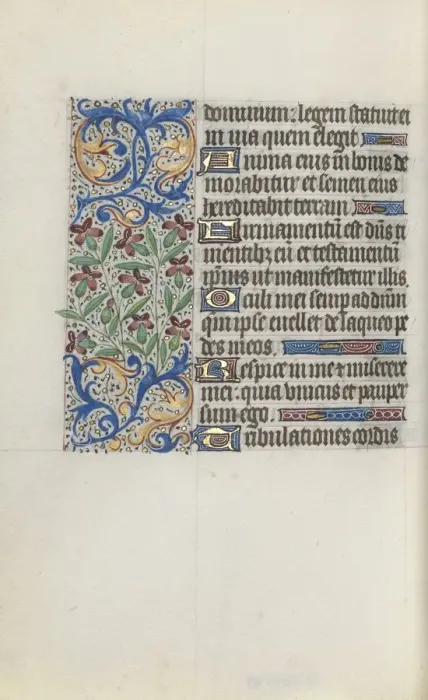 dominum: legem statuit ei
in via quem elegit
Anima eius in bonis de
morabitur et semen eius
hereditabit terram
Firmamentū est dn̄s ti
mentibꝫ eū et testamentū
ip̄ius ut manifestetur illis.
Oculi mei semp ad dn̄m
qm̄ ip̄se evellet de laqueo pe
des meos.
Respice in me ⁊ miserere
mei: quia vnicus et pauper
sum ego.
Tribulationes cordis